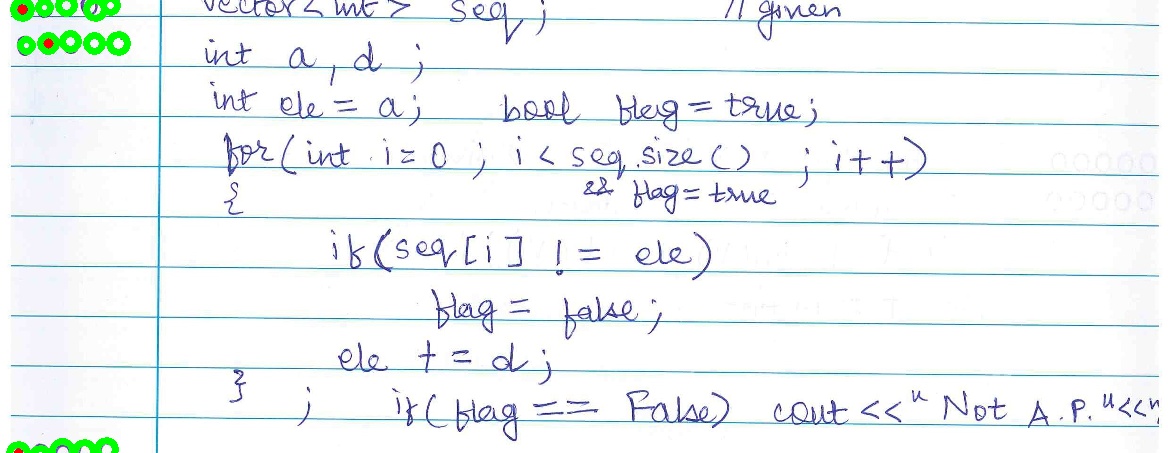 vector<int> seq; // given
int a, d;
int ele = a; bool flag = true;
for(int i=0; i< seq.size() ; i++)
&& flag=true
{
if(seq[i] != ele)
flag = false;
ele += d;
} ; if(flag == False) cout <<" Not A.P."<<"